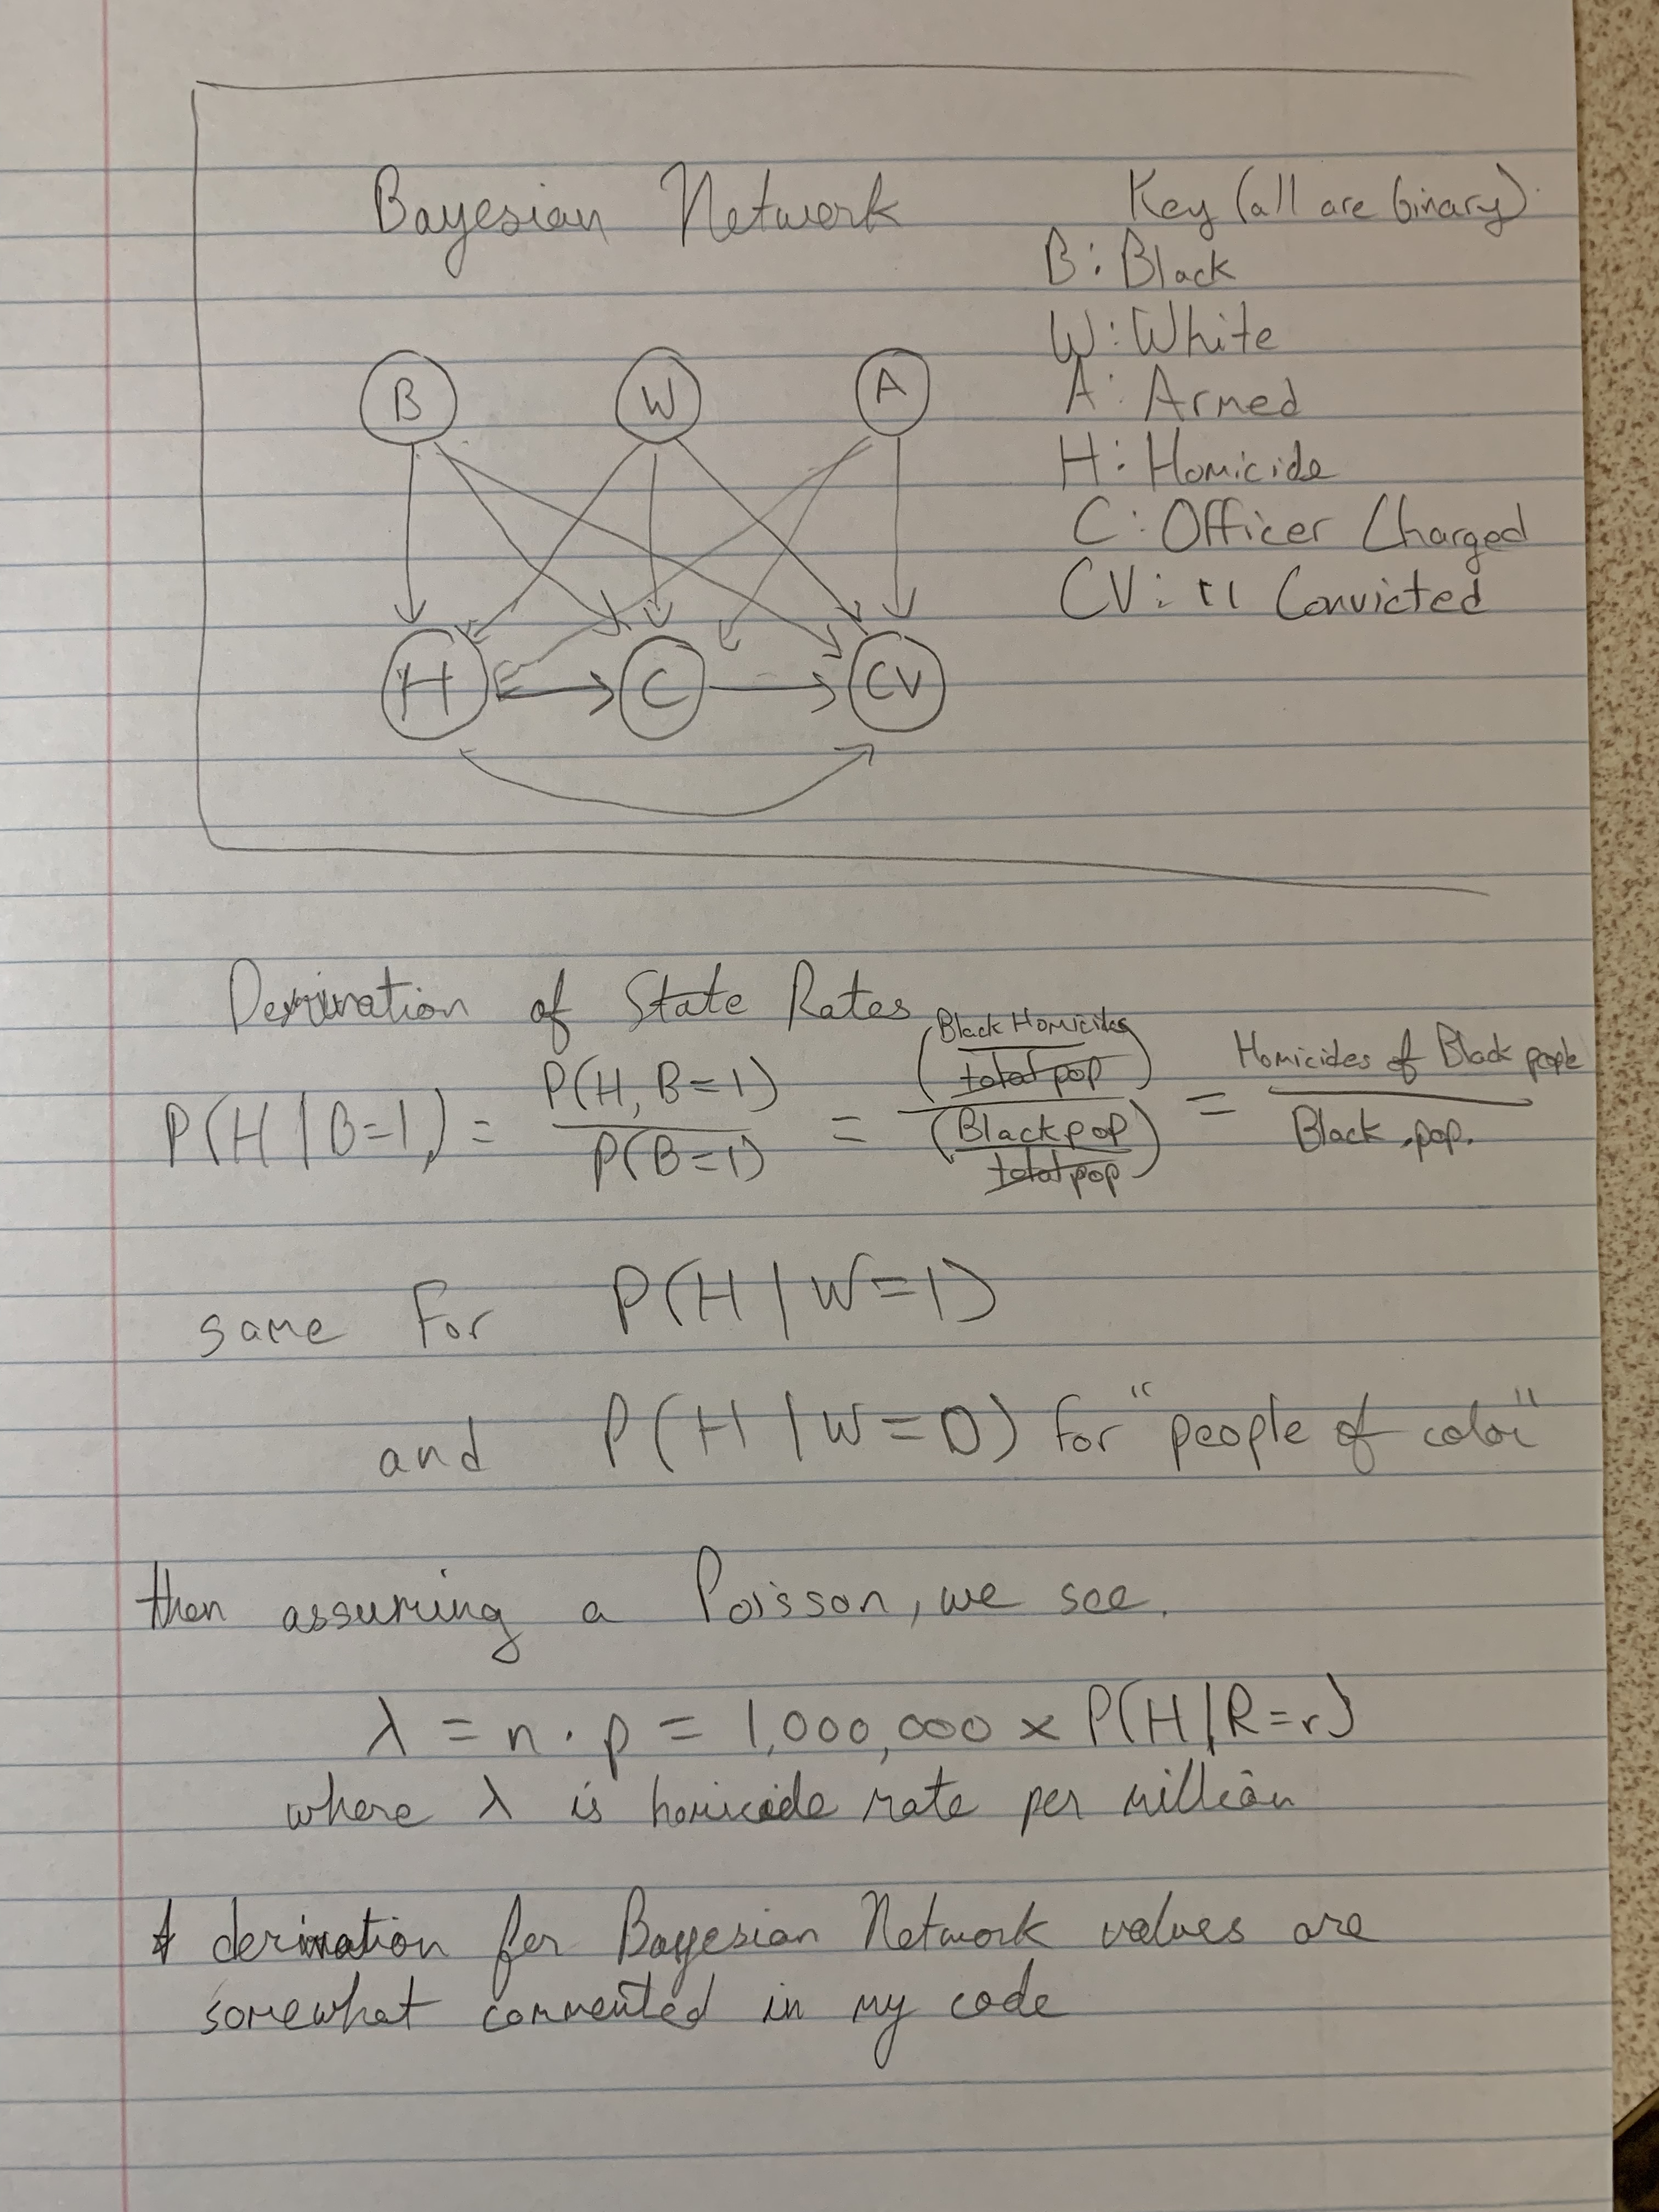 Bayesian Network
Key (all are binary)
B: Black
W: White
A: Armed
H: Homicide
C: Officer Charged
CV: " Convicted
B W A
H C CV
Derivation of State Rates
P(H | B=1) = P(H, B=1) / P(B=1) = (Black Homicides / total pop) / (Black pop / total pop) = Homicides of Black people / Black pop.
same for P(H | W=1)
and P(H | W=0) for "people of color"
then assuming a Poisson, we see.
λ = n · p = 1,000,000 x P(H | R=r)
where λ is homicide rate per million
* derivation for Bayesian Network values are
somewhat commented in my code